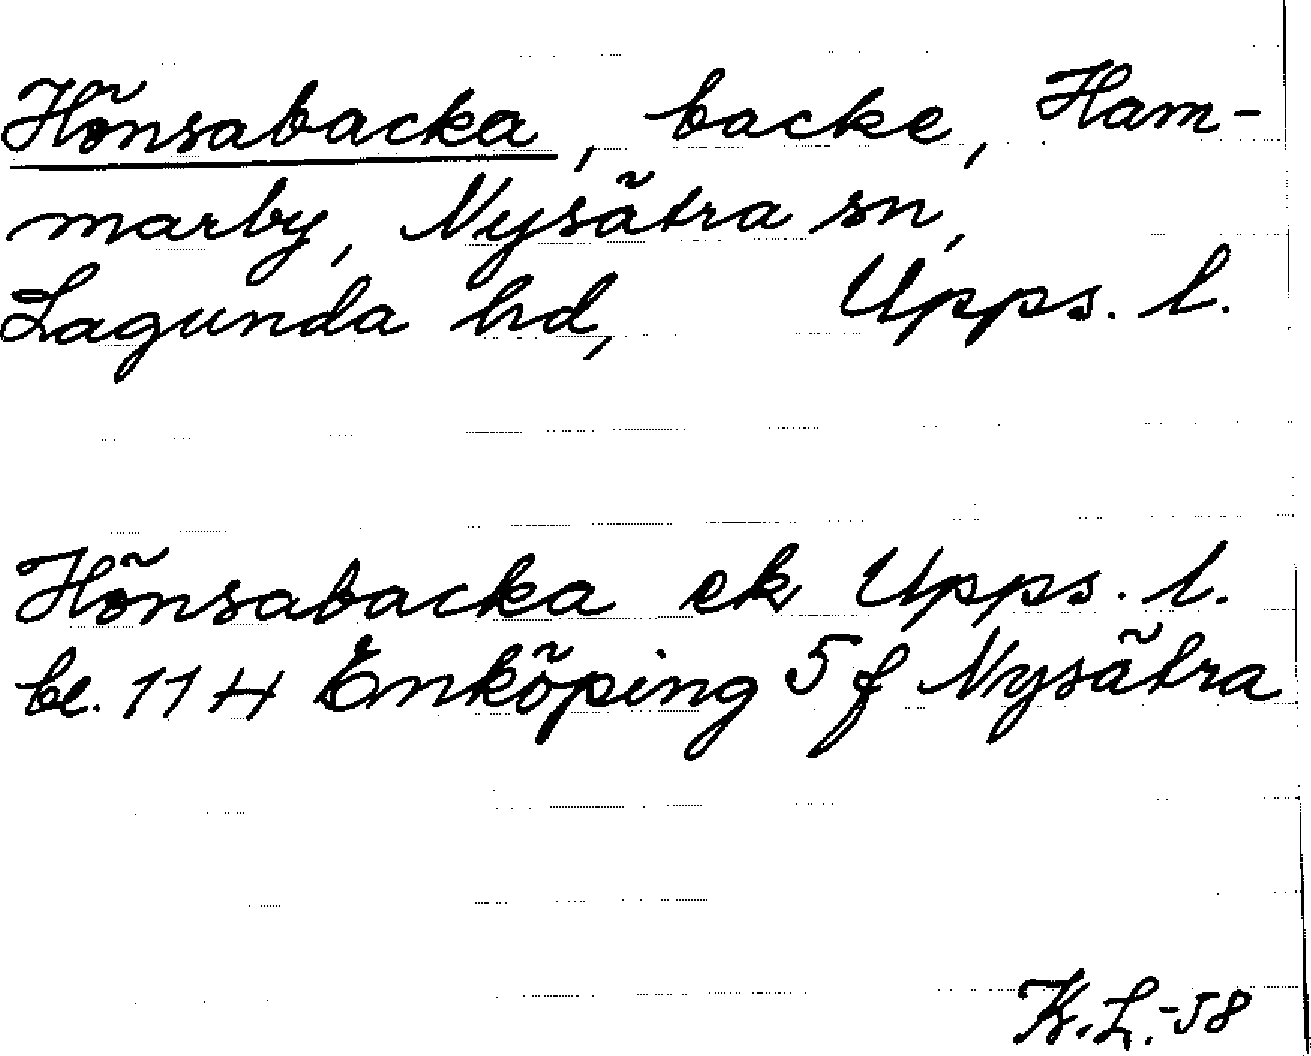 Hönsabacka, backe, Ham-
marby, Nysätra sn,
Lagunda hd, Upps. l.
Hönsabacka ek Upps. l.
bl. 11 H Enköping 5 f Nysätra
K.L.-58